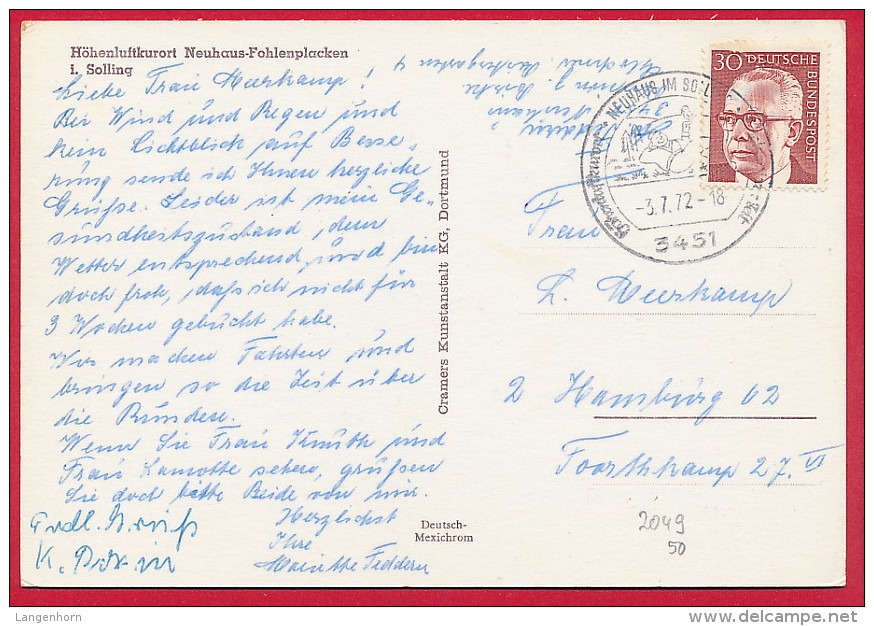 Höhenluftkurort Neuhaus-Fohlenplacken
i. Solling
Liebe Frau Meerkamp!
Bei Wind und Regen und
kein Lichtblick auf Besse-
rung sende ich Ihnen herzliche
Grüße. Leider ist mein Ge-
sundheitszustand dem
Wetter entsprechend und bin
doch froh, daß ich nicht für
3 Wochen gebucht habe.
Wir machen Fahrten und
bringen so die Zeit über
die Runden.
Wenn Sie Frau Knuth und
Frau Kamotte sehen, grüßen
Sie doch bitte Beide von mir.
Herzlichst
Ihre
Mariette Feddern
Frdl. Gruß
K.
Cramers Kunstanstalt KG, Dortmund
Deutsch-
Mexichrom
30 DEUTSCHE
BUNDESPOST
NEUHAUS IM SOLL
-3.7.72-18
3451
Frau
L. Meerkamp
2 Hamburg 62
Foorthkamp 27 VI
2049
50
Langenhorn
delcampe.net